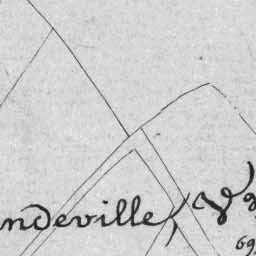 ndeville, V
69